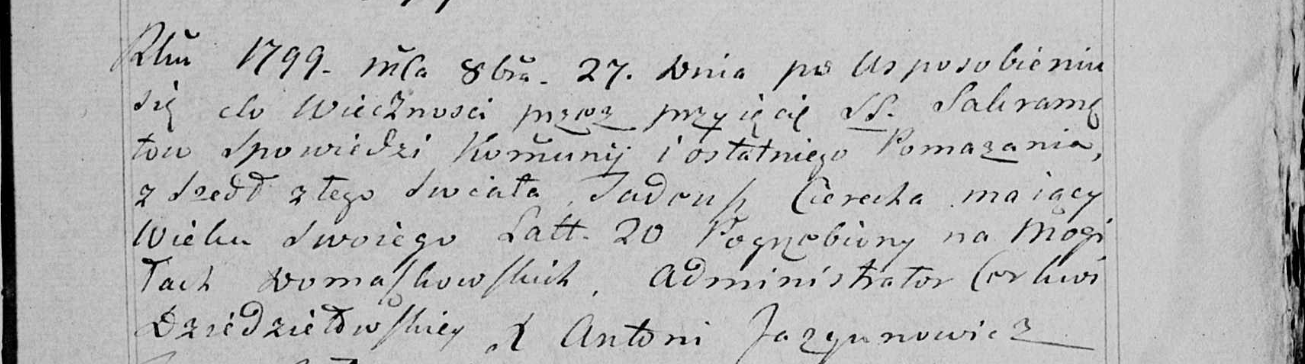 Rku 1799. mca 8bra. 27. dnia po Usposobieniu
się do Wieczności przez przyięcie SS. Sakramę
tow Spowiedzi Kommunij i ostatniego Pomazania,
z szedł z tego Swiata Tadeusz Cierecha maiący
Wieku Swoiego Latt. 20 Pogrzebiony na Mogi
łach Domaszkowskich, Administrator Cerkwi
Dziedziełowskiey X Antoni Jazgunowicz